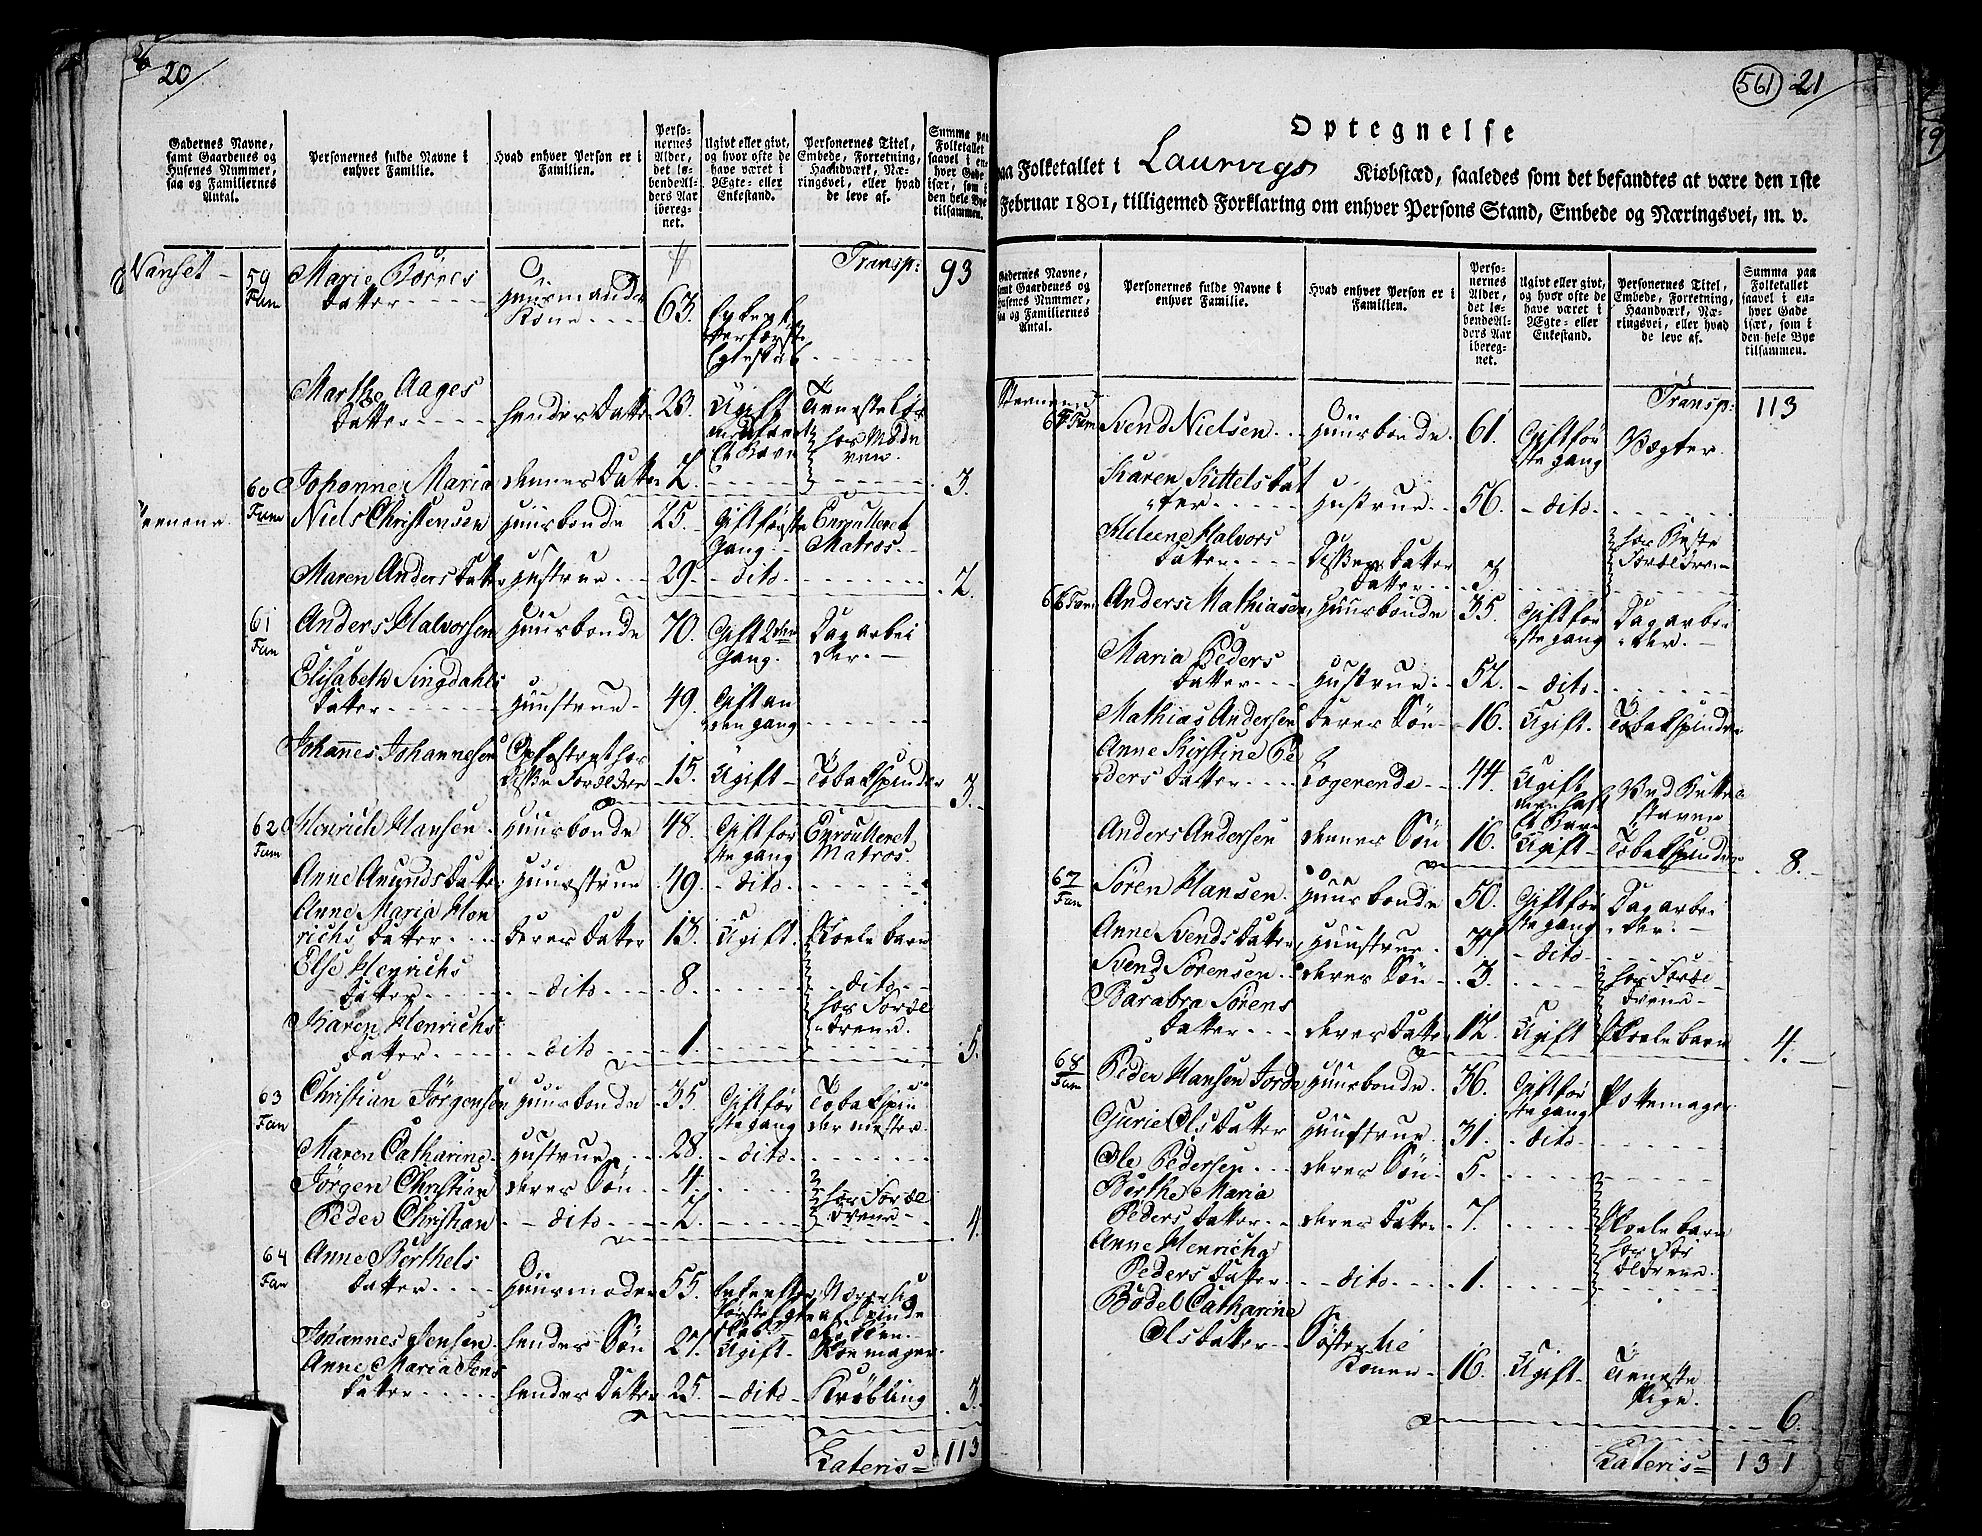 20
Gadernes Navne,
samt Gaardenes og
Husenes Nummer,
saa og Familiernes
Antal.
Personernes fulde Navne i
enhver Familie.
Hvad enhver Person er i
Familien.
Perso-
nernes
Alder,
det lø-
bende Al-
ders Aar
ibereg-
net.
Ugivt eller givt,
og hvor ofte de
have været i
Ægte- eller
Enkestand.
Personernes Titel,
Embede, Forretning,
Haandværk, Næ-
ringsvei, eller hvad
de leve af.
Summa paa
Folketallet
saavel i en-
hver Gade
især, som i
den hele Bye
tilsammen.
Transp: 93
Nanset 59 Fam
Marie Börres
Datter Huusmands
Kone 63.
Marthe Aages
Datter hendes Datter 23. Ugift Tienestetøs
60 Johanne Maria dennes Datter 2. 3.
Fam Niels Christensen Huusbonde 25. Gift første Enroulleret
gang Matros
Maren Andersdatter Hustrue 29. dito 2.
61 Fam Anders Halvorsen Huusbonde 70. Gift 2den Dagarbei
gang. der.
Elisabeth Singdahls
Datter Huustrue 49. Gift an
den gang
Johannes Johannesen Opfostret hos
disse Forældre 15. Ugift Tobakspinder 3.
62 Fam Henrich Hansen Huusbonde 48. Gift før Enroulleret
ste gang Matros
Anne Amundsdatter Huustrue 49. dito
Anne Maria Hen
richs Datter deres Datter 13. Ugift. Skolebarn
Else Henrichs
Datter dito 8. dito
hos Foræl
drene
Karen Henrichs
Datter dito 1. 5.
63 Fam Christian Jørgensen Huusbonde 35. Gift før Tobakspin
ste gang der mester
Maren Catharine Hustrue 28. dito
Jørgen Christian deres Søn 4. hos Foræl
Peder Christian dito 2. drene 4.
64 Fam Anne Berthels
Datter Huusmoder 55.
Johannes Jensen hendes Søn 27. Ugift Skoemager
Anne Maria Jens
Datter hendes Datter 25. dito Krøbling 3.
Lateris 113
561 21
Optegnelse
paa Folketallet i Laurvigs Kiøbstæd, saaledes som det befandtes at være den 1ste
Februar 1801, tilligemed Forklaring om enhver Persons Stand, Embede og Næringsvei, m. v.
Gadernes Navne,
samt Gaardenes og
Husenes Nummer,
saa og Familiernes
Antal.
Personernes fulde Navne i
enhver Familie.
Hvad enhver Person er i
Familien.
Perso-
nernes
Alder,
det lø-
bende Al-
ders Aar
ibereg-
net.
Ugivt eller givt,
og hvor ofte de
have været i
Ægte- eller
Enkestand.
Personernes Titel,
Embede, Forretning,
Haandværk, Næ-
ringsvei, eller hvad
de leve af.
Summa paa
Folketallet
saavel i en-
hver Gade
især, som i
den hele Bye
tilsammen.
Transp: 113
Fam Svend Nielsen Huusbonde 61. Gift før Vægter.
ste gang
Karen Kittelsdat
ter Hustrue 56. dito
Helene Halvors
Datter Disses Datter
Datter 3
66 Fam Anders Mathiasen Huusbonde 35. Gift før Dagarbei
ste gang der.
Maria Peders
Datter Hustrue 52. dito
Mathias Andersen deres Søn 16. Ugift. Tobakspinder
Anne Kirstine Pe
ders Datter Logerende 44. Ugift
Anders Andersen dennes Søn 16. Ugift Tobakspinder 8.
67 Fam Søren Hansen Huusbonde 50. Gift før Dagarbei
ste gang der.
Anne Svendsdatter Huustrue dito
Svend Sørensen deres Søn 3. hos Foræl
drene
Barabra Sørens
Datter deres Datter 12. Ugift Skolebarn 4.
68 Fam Peder Hansen Jorde Huusbonde 36. Gift før Pottemager
ste gang
Gurie Olsdatter Huustrue 31. dito
Ole Pedersen deres Søn 5.
Berthe Maria
Peders Datter deres Datter 7. Skolebarn
hos For
ældrene
Anne Henricha
Peders Datter dito 1.
Bodel Catharine
Olsdatter Søster til
Konen 16. Ugift Tieneste
Pige. 6.
Lateris 131